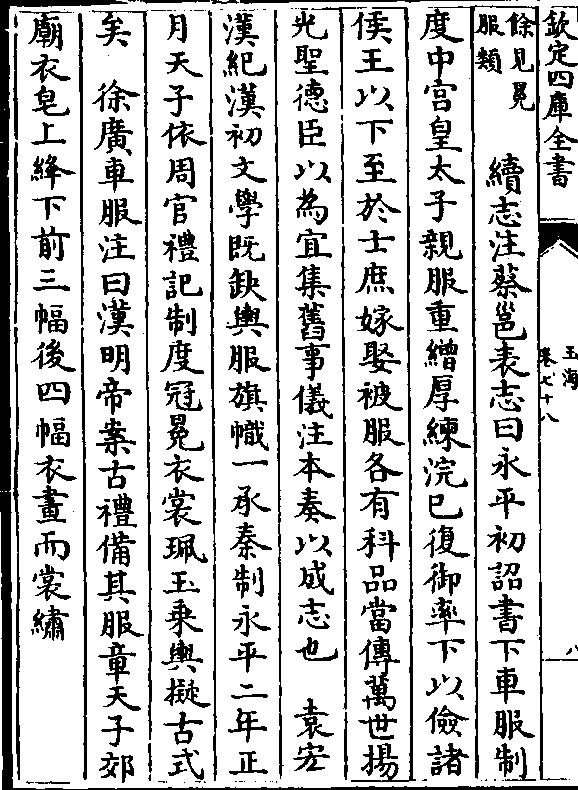 欽定四庫全書
玉海
卷七十八
八
餘見冕
服類
續志注蔡邕表志曰永平初詔書下車服制
度中宮皇太子親服重繒厚練浣已復御率下以儉諸
侯王以下至於士庶嫁娶被服各有科品當傳萬世揚
光聖德臣以為宜集舊事儀注本奏以成志也　袁宏
漢紀漢初文學既缺輿服旗幟一承秦制永平二年正
月天子依周官禮記制度冠冕衣裳珮玉乘輿擬古式
矣　徐廣車服注曰漢明帝案古禮備其服章天子郊
廟衣皂上絳下前三幅後四幅衣畫而裳繡